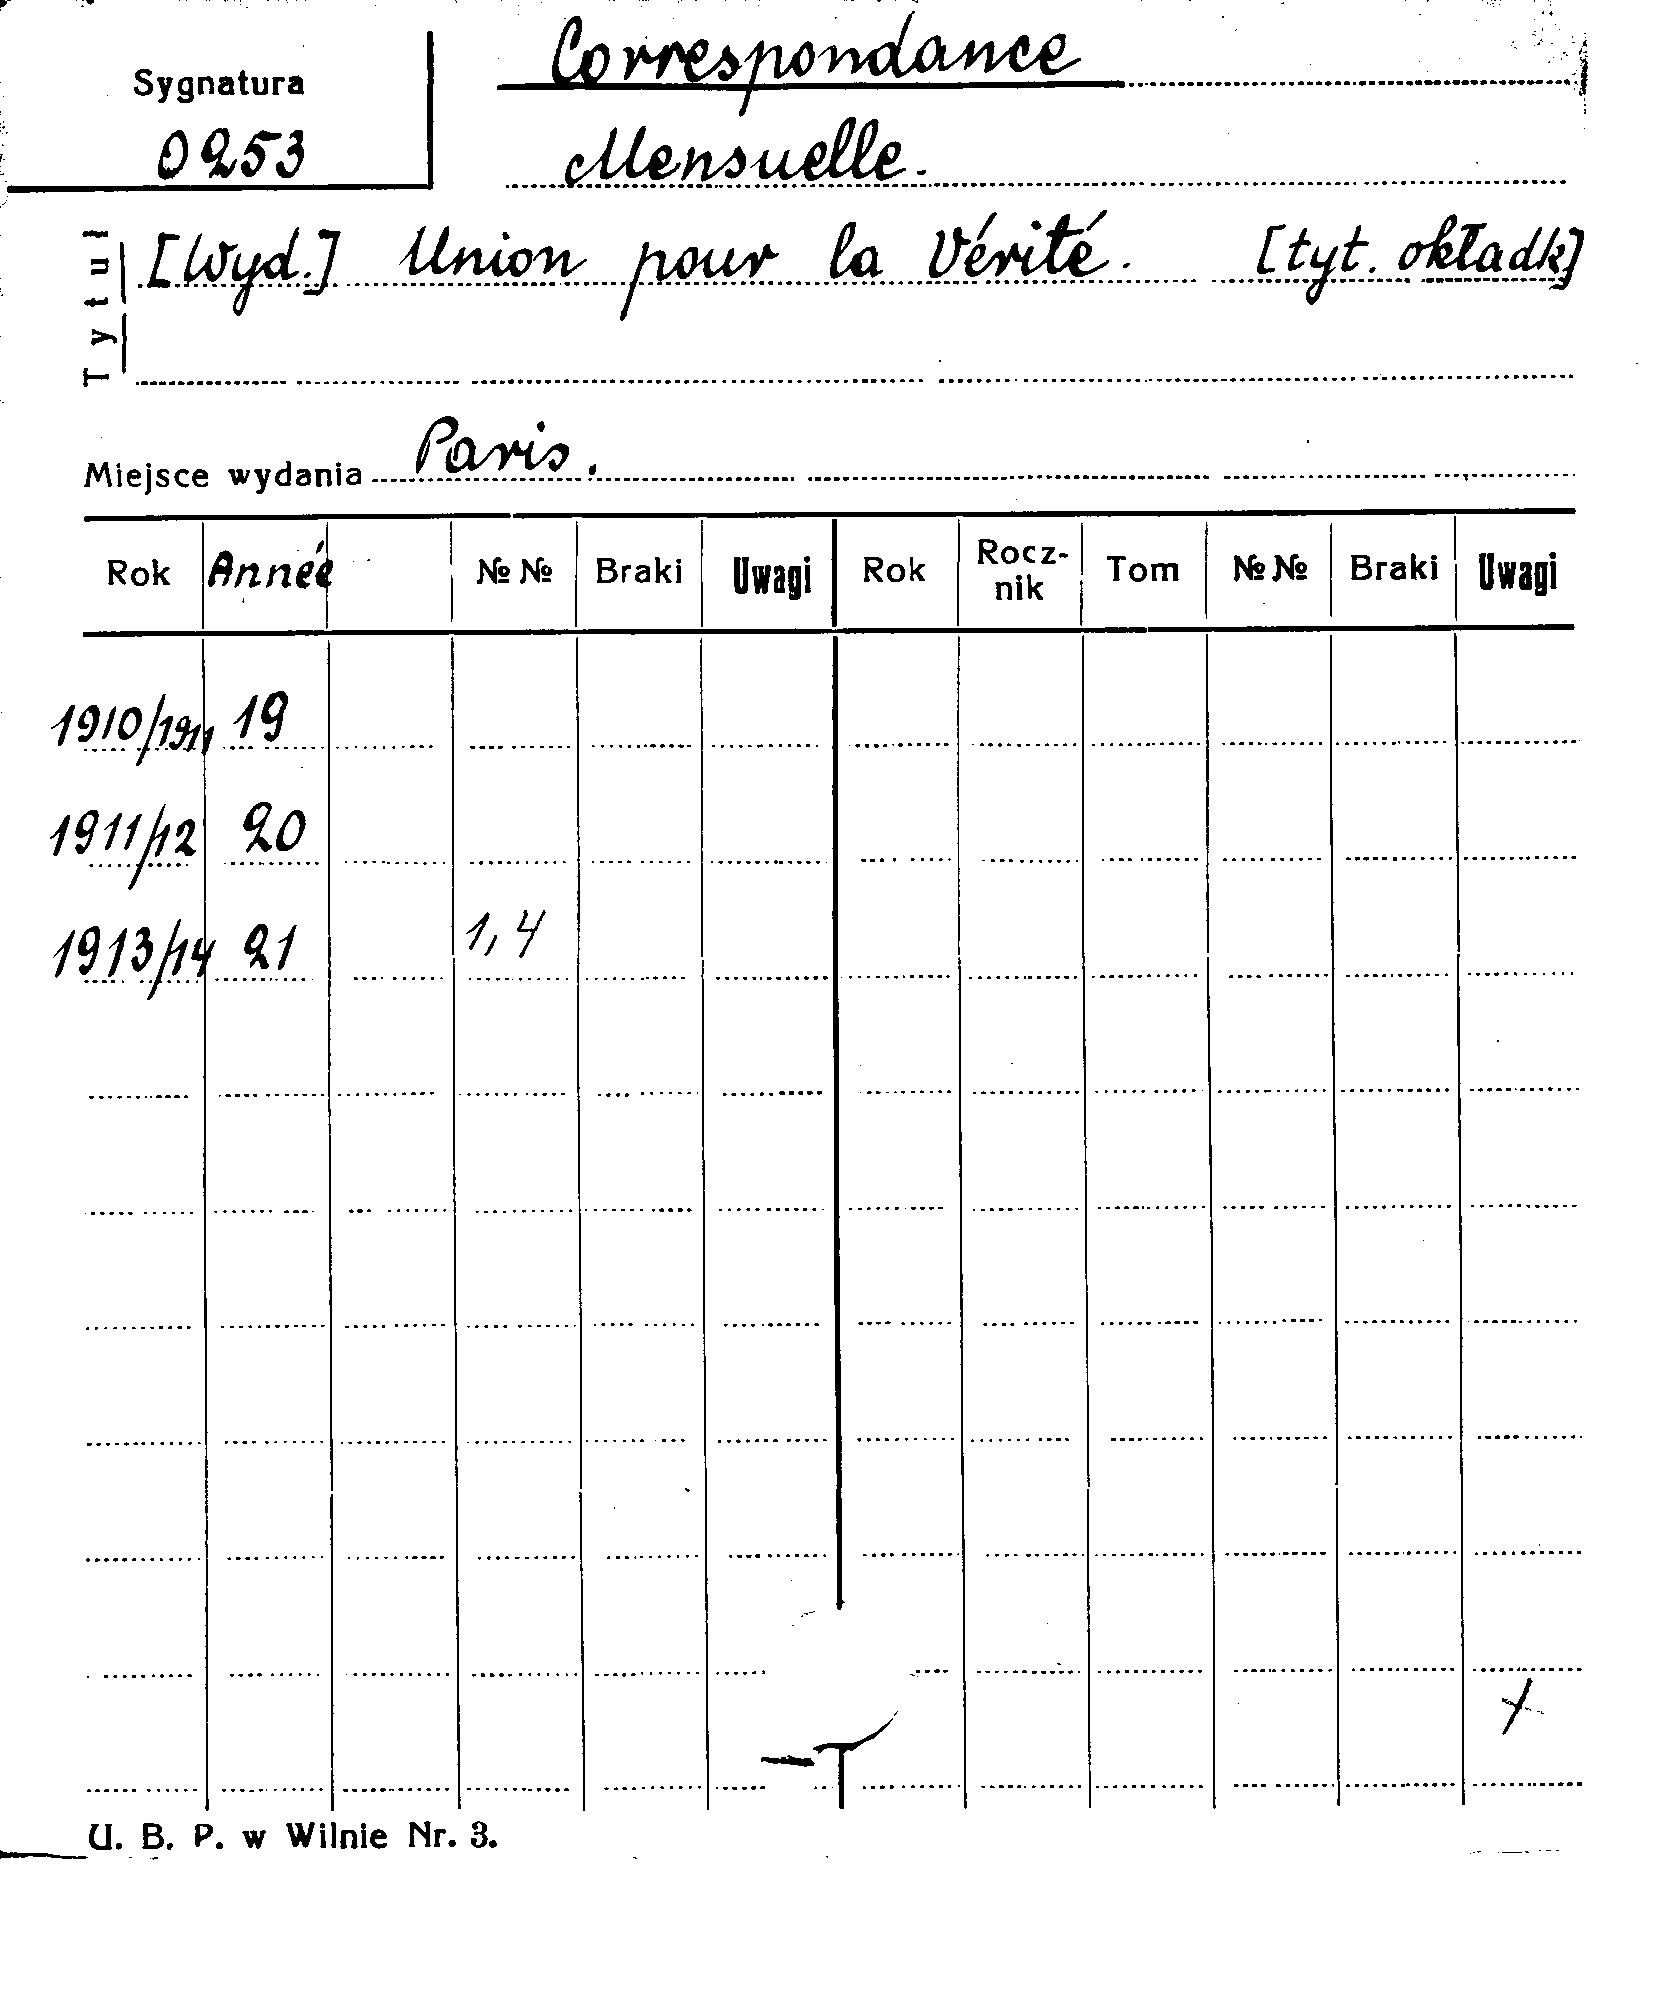 Correspondance
Sygnatura
0253
Mensuelle.
Tytuł
[Wyd.] Union pour la Vérité. [tyt. okładk]
Miejsce wydania Paris.
Rok Année №№ Braki Uwagi Rok Rocz-nik Tom №№ Braki Uwagi
1910/1911 19
1911/12 20
1913/14 21 1,4
U. B. P. w Wilnie Nr. 3.